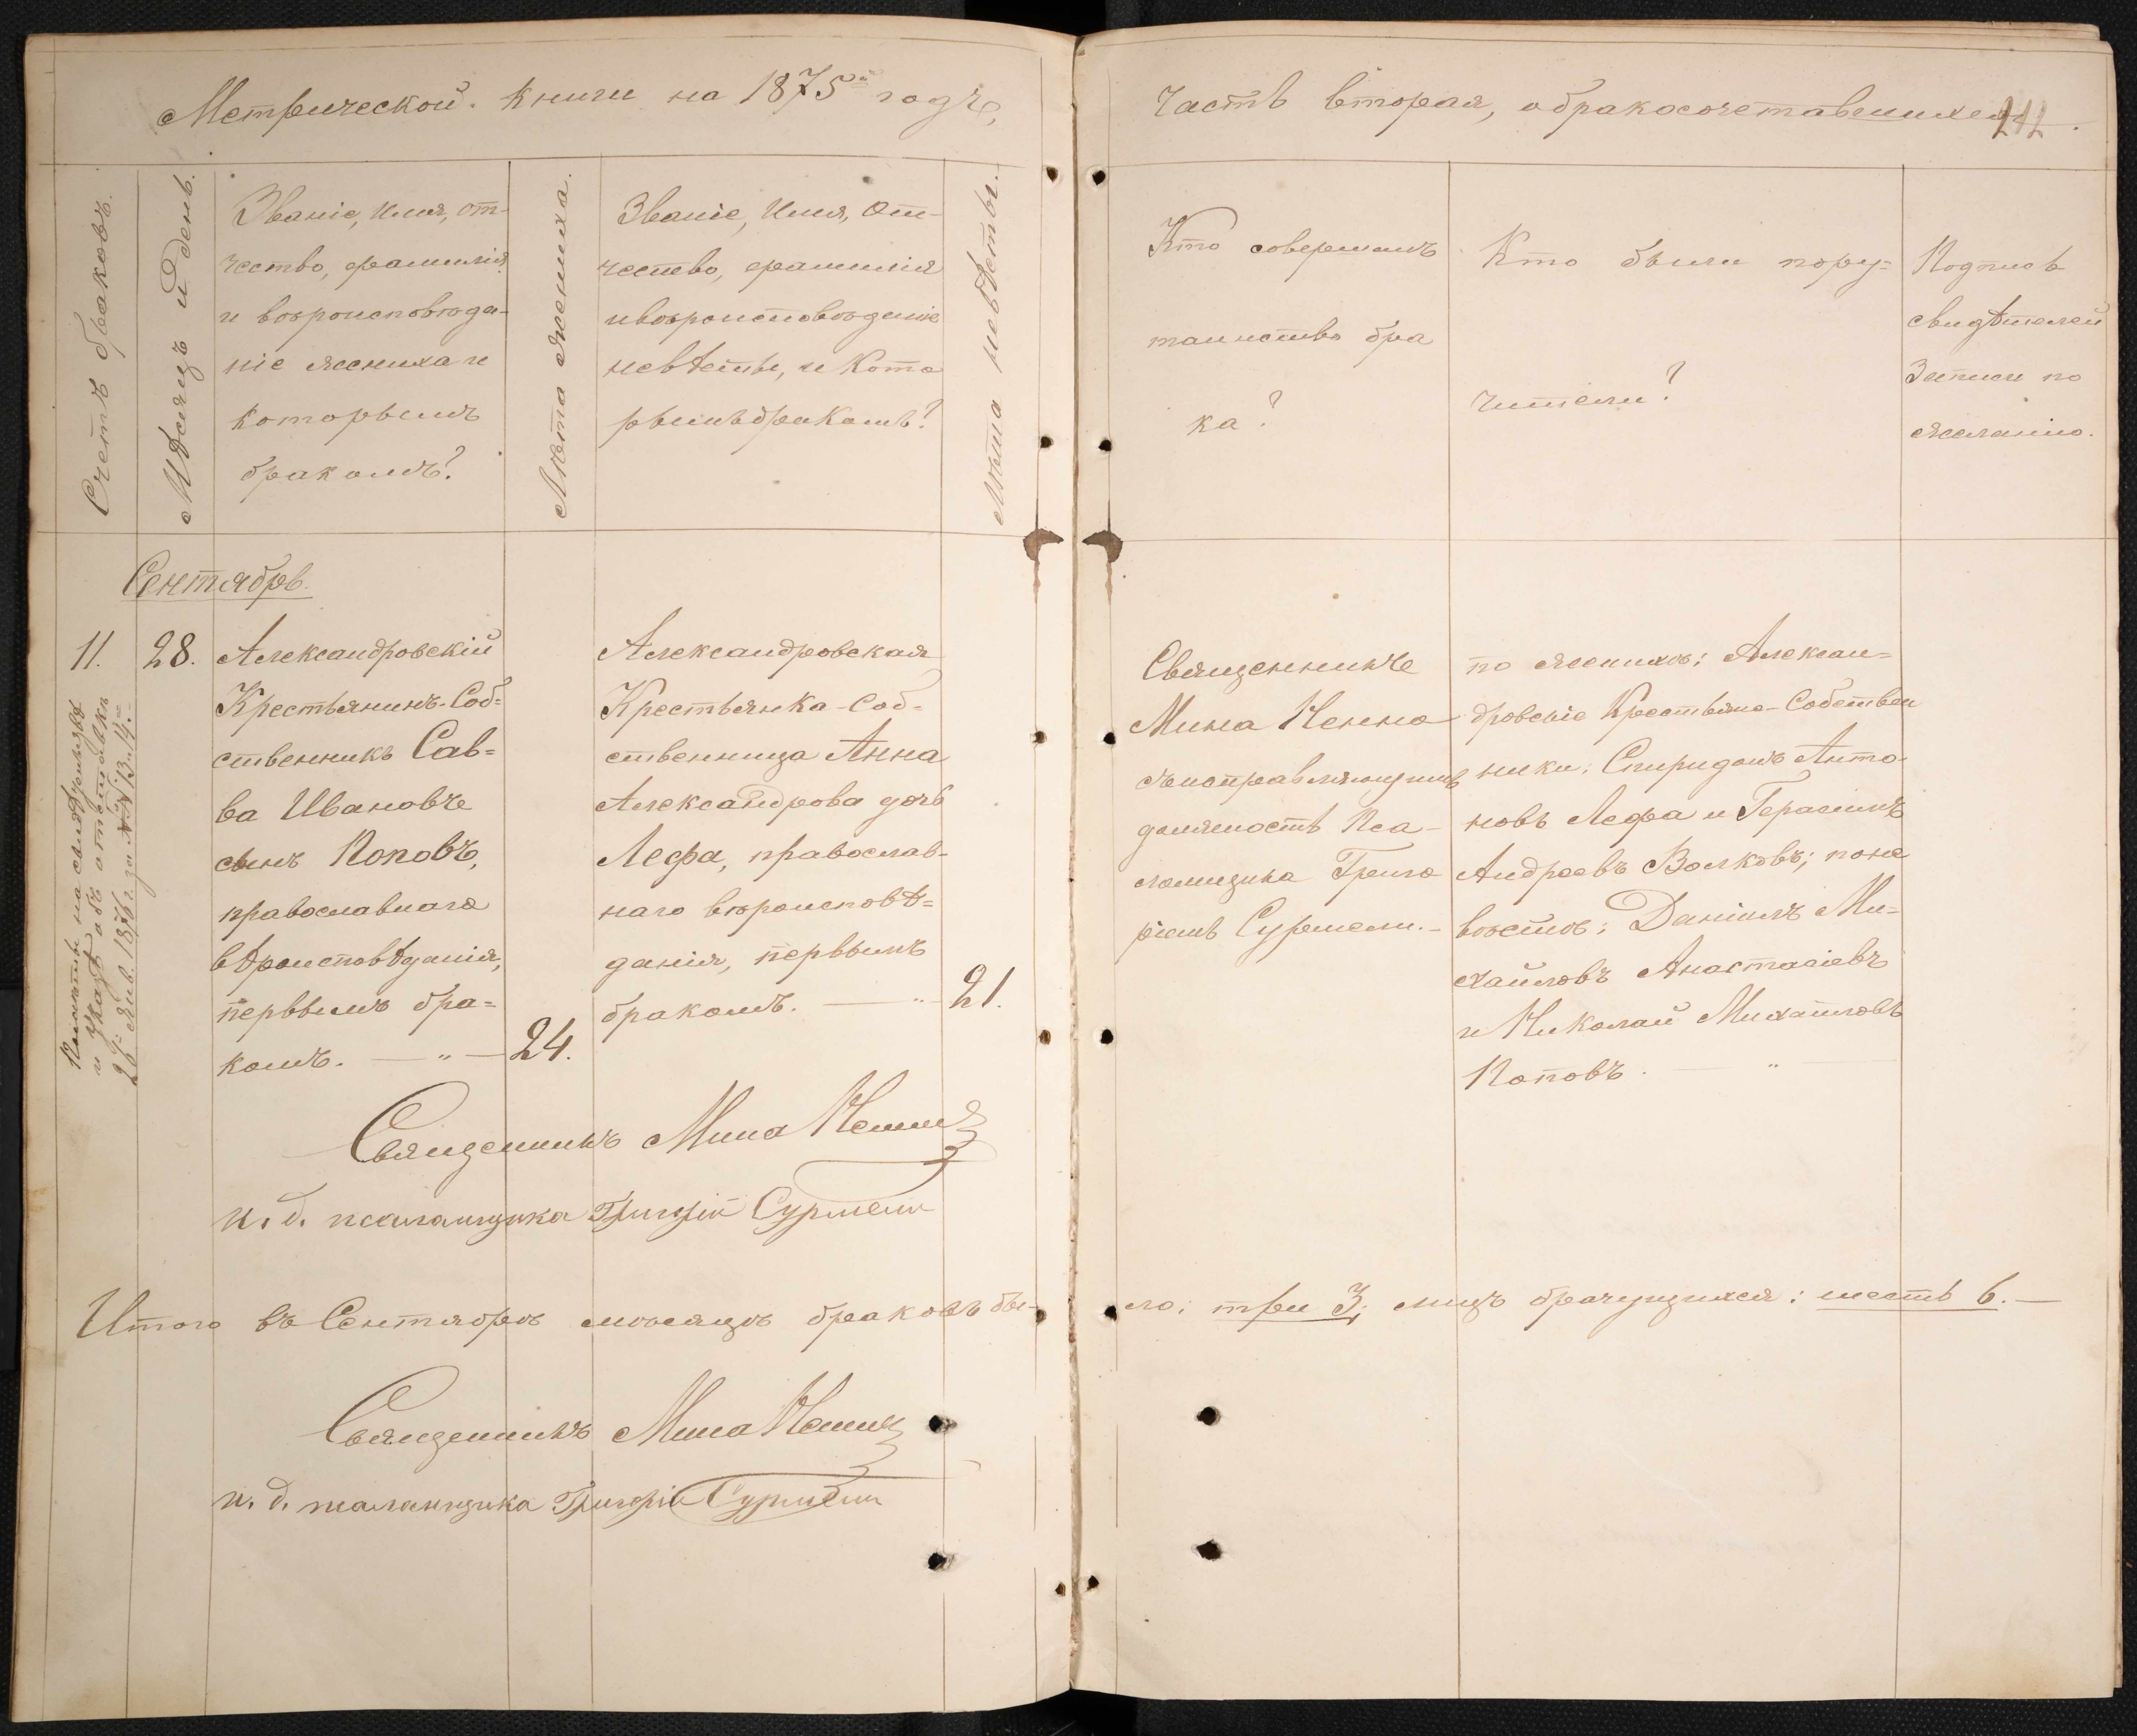 Метрической книги на 1875й годъ,
Часть вторая, о бракосочетавшихся
212
Счетъ браковъ.
Мѣсяцъ и день.
Званіе, имя, от-
чество, фамилія
и вѣроисповѣда-
ніе жениха и
которымъ
бракомъ?
Лѣта жениха.
Званіе, Имя, От-
чество, фамилія
и вѣроисповѣданіе
невѣсты, и кото
рымъ бракомъ?
Лѣта невѣсты.
Кто совершалъ
таинство бра
ка?
Кто были пору=
чители?
Подпись
свидѣтелей
Записи по
желанію.
Сентябрь.
11.
28.
Александровскій
Крестьянинъ-Соб=
ственникъ Сав=
ва Ивановъ
сынъ Поповъ,
православнаго
вѣроисповѣданія,
первымъ бра=
комъ. — „ —
24.
Александровская
Крестьянка-Соб=
ственница Анна
Александрова дочь
Лефа, православ-
наго вѣроисповѣ=
данія, первымъ
бракомъ. — „ —
21.
Священникъ
Мина Ненно
съ исправляющимъ
должность Пса-
ломщика Григо
ріемъ Сурмели.-
по женихѣ: Алексан=
дровскіе Крестьяне-Собствен
ники: Спиридонъ Анто-
новъ Лефа и Герасимъ
Андреевъ Волковъ; по не
вѣстѣ: Даніилъ Ми=
хайловъ Анастасіевъ
и Николай Михайловъ
Поповъ. — „ —
и указъ объ отсылкѣ
26го Янв. 1876 г. за №№ 13 и 14.-
Священникъ Мина Ненно
И. д. псаломщика Григорій Сурмели
Итого въ Сентябрѣ мѣсяцѣ браковъ бы-
ло: три 3; лицъ брачущихся: шесть 6.—
Священникъ Мина Ненно
И. д. псаломщика Григорій Сурмели